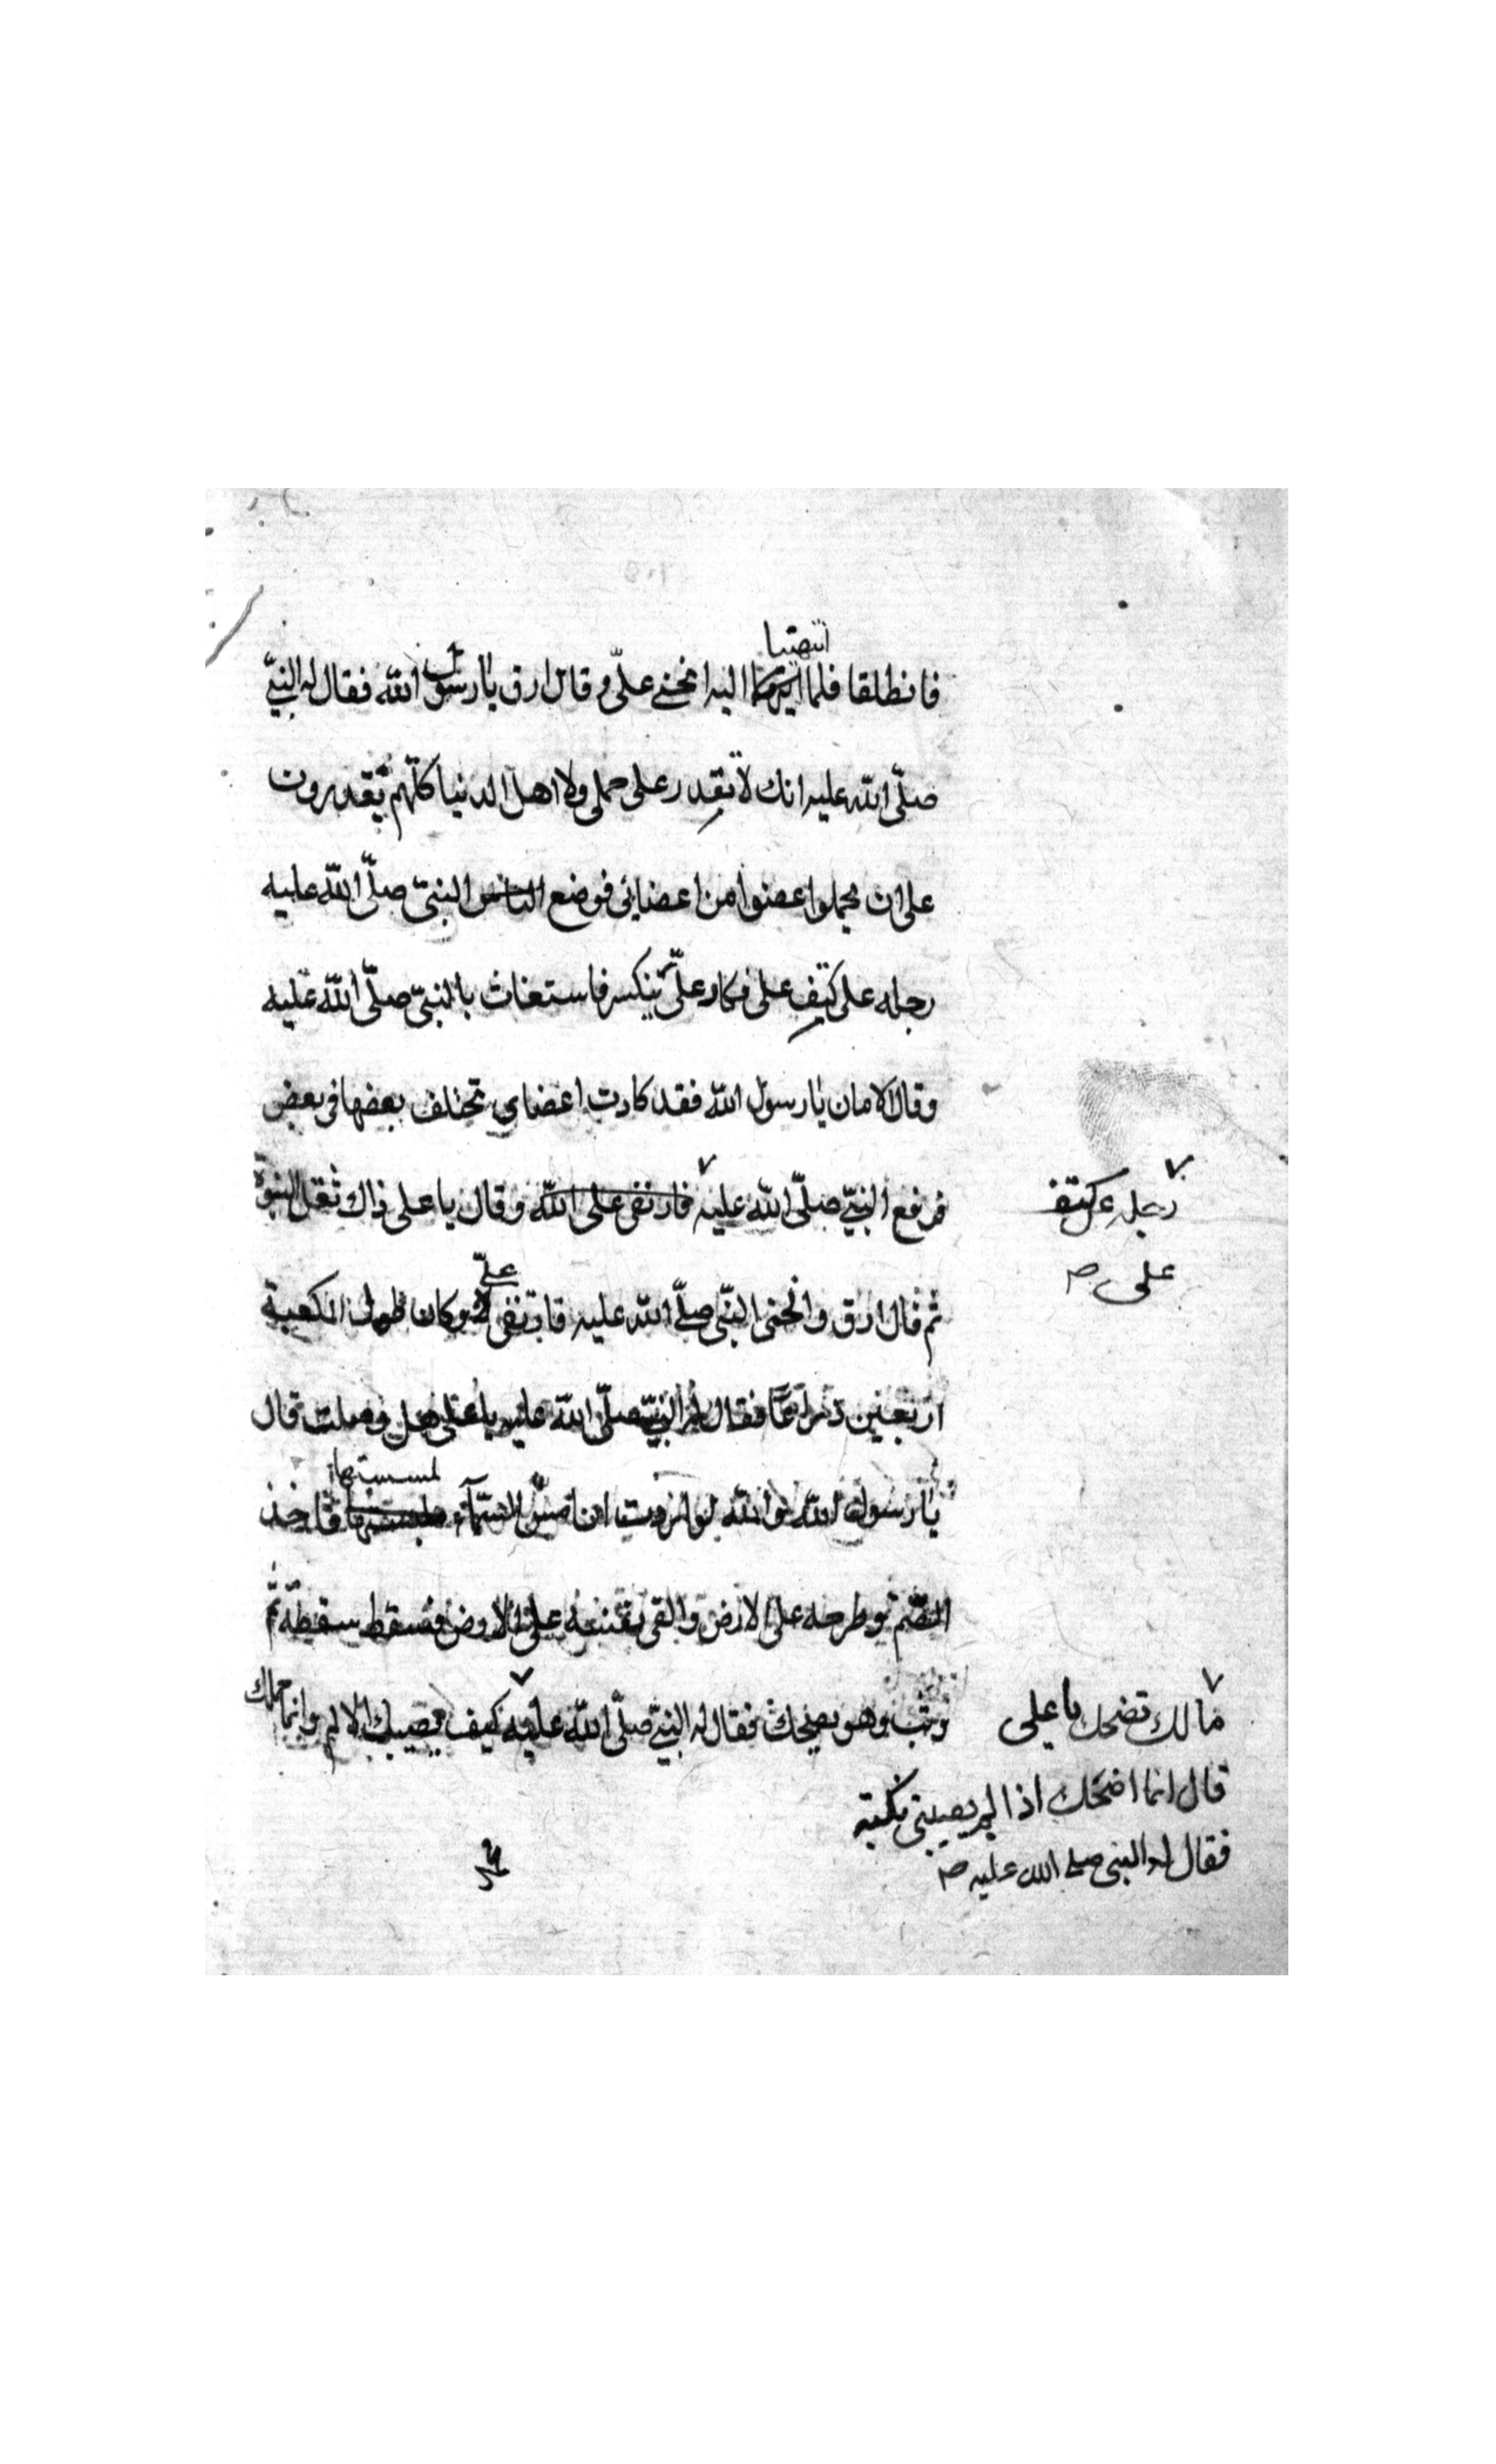 انتهتيا
فانطلقا فلما اليه انحنى علىّ وقال ارق يا رسول الله فقال له النبيّ
صلّى الله عليه انك لا تقدر على حملى ولا اهل الدنيا كلّهم تقدرون
على ان يحملوا عضوا من اعضائى فوضع الناس النبىّ صلّى الله عليه
رجله على كتف على فكاد علىّ ينكسر فاستغاث بالنبىّ صلّى الله عليه
وقال الامان يا رسول الله فقد كادت اعضاى تختلف بعضها فى بعض
فرفع النبيّ صلّى الله عليه فارتقى على الله وقال يا على ذاك ثقل النبوة
رجله عن كتف
على صح
علىّ
ثم قال ارق وانحنى النبّى صلّى الله عليه فارتقى وكان طول الكعبة
اربعين ذراعًا فقال له النبيّ صلّى الله عليه يا على هل وصلت قال
لمسستها
يا رسول الله والله لو اردت ان امسّ السّمآء فاخذ
الصّنم وطرحه على الارض والقى بنفسه على الارض فسقط سقطة ثم
وثب وهو يضحك فقال له النبيّ صلّى الله عليه كيف يصيبك الالم وانما حملك
مالك تضحك يا على
قال انما اضحك اذا لم يصيبنى نكبة
فقال له النبى صلى الله عليه صح